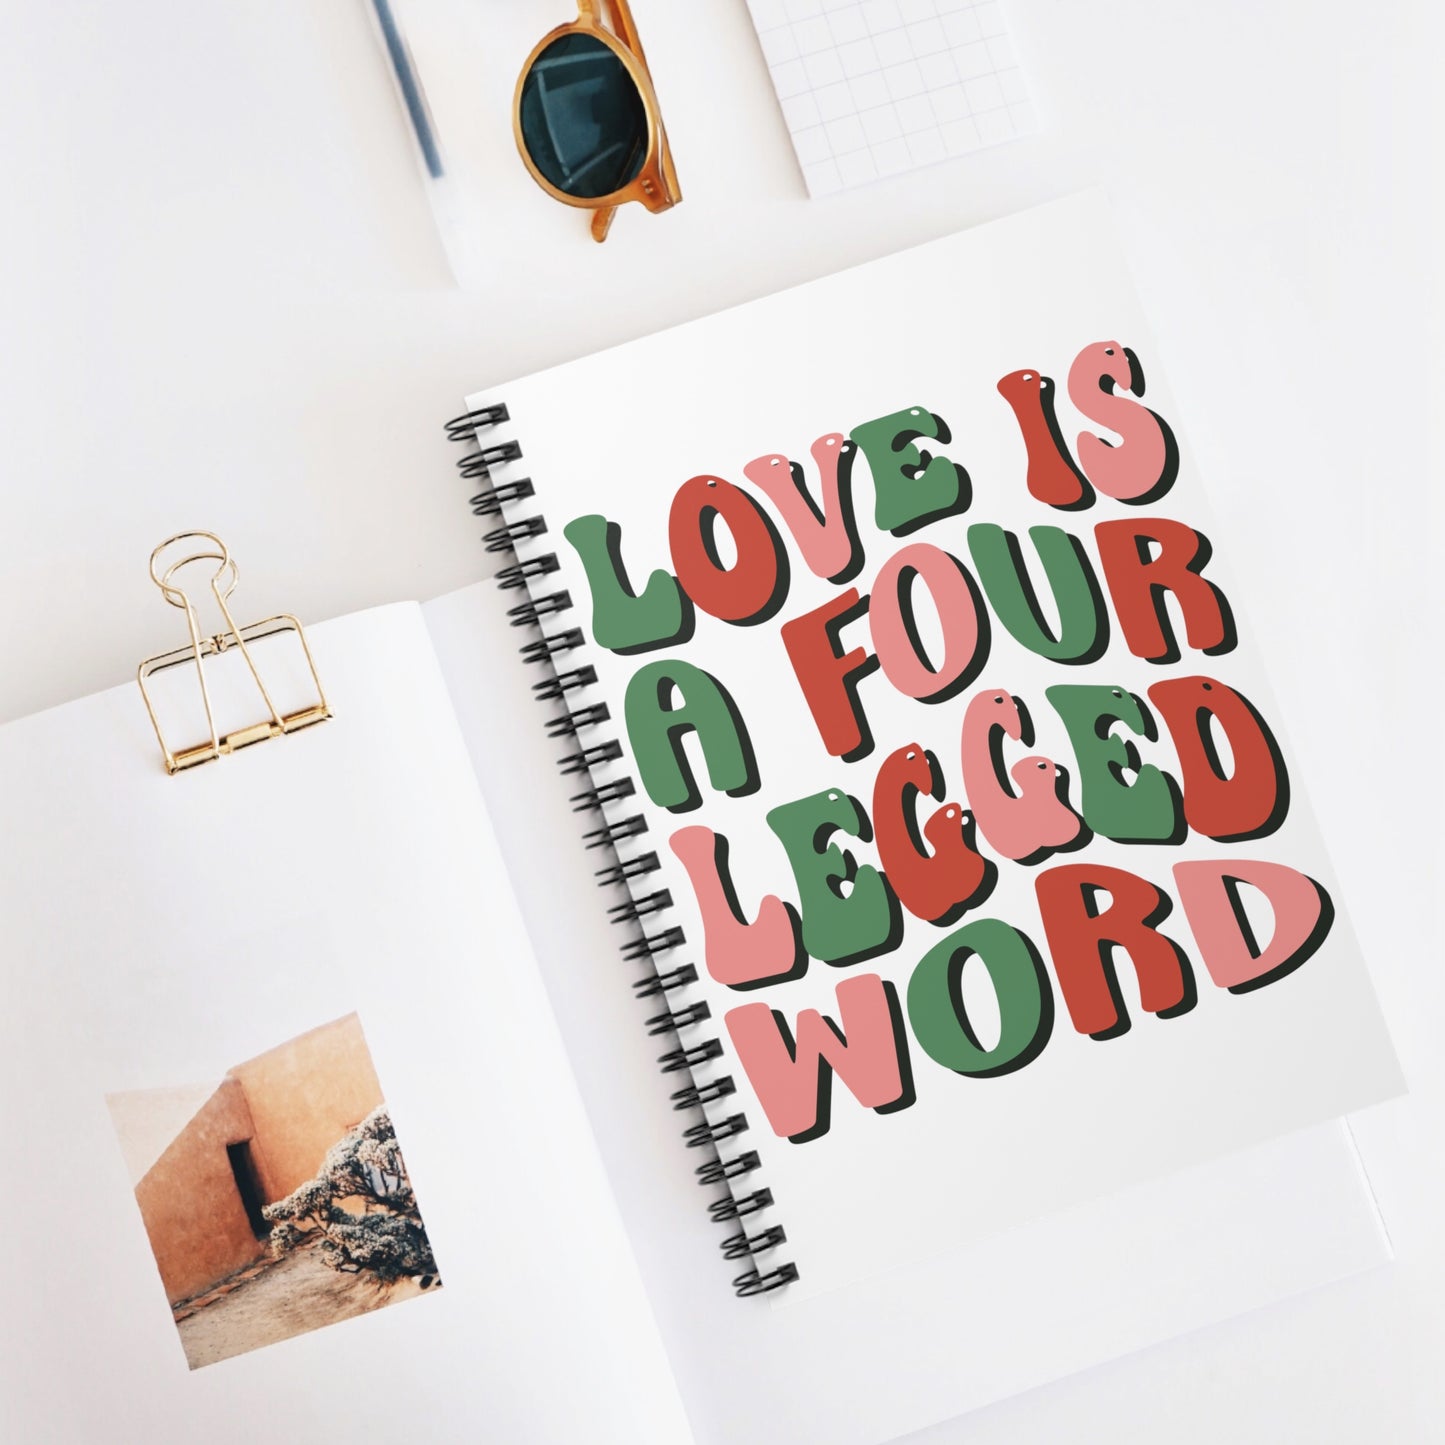 LOVE IS
A FOUR
LEGGED
WORD